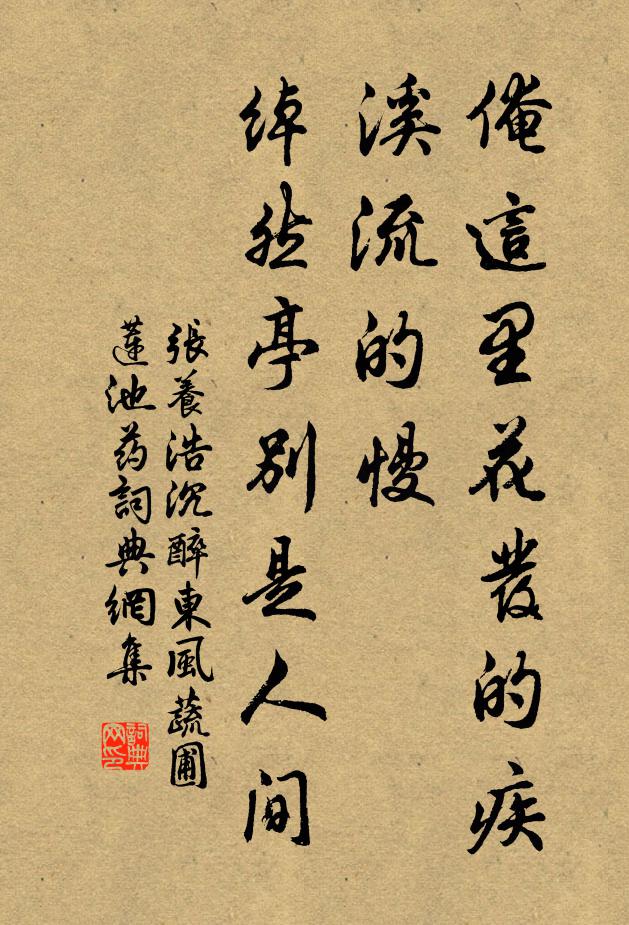 俺這里花發的疾
溪流的慢
綽然亭別是人間
張養浩沉醉東風蔬圃
蓮池药詞典網集
詞典网印